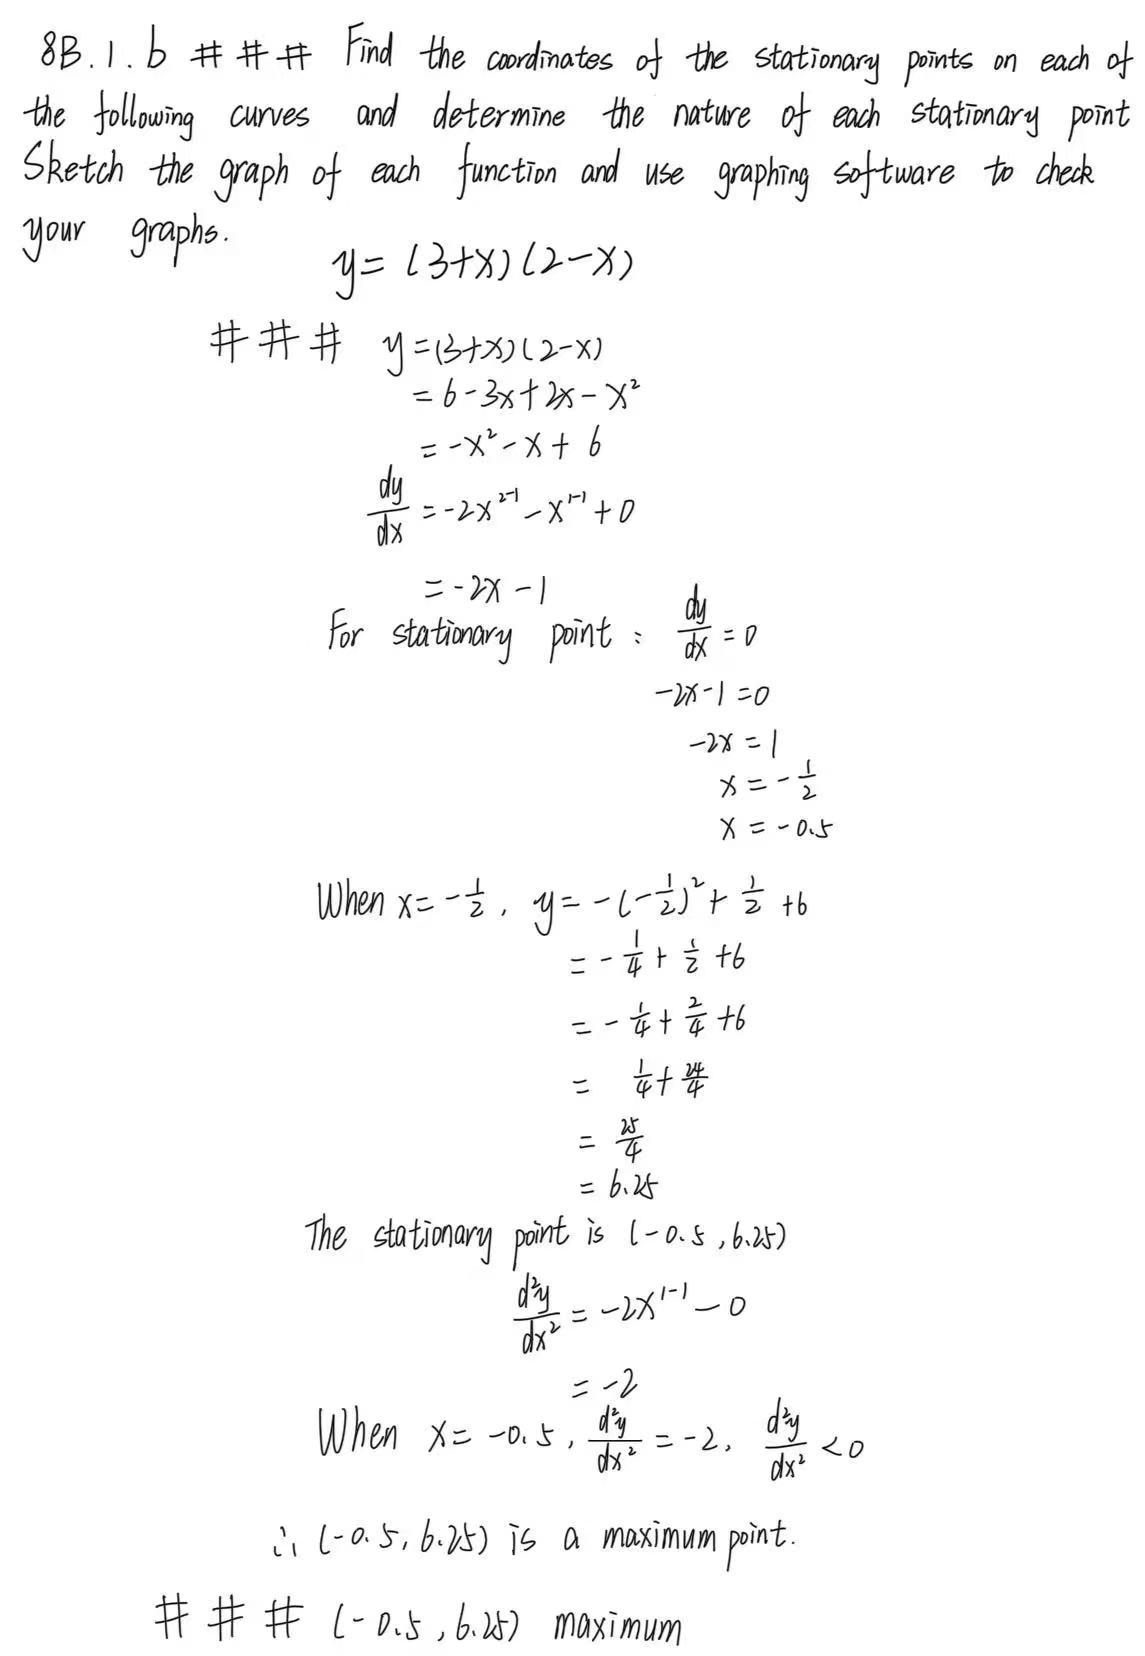 8B.1.b ### Find the coordinates of the stationary points on each of
the following curves and determine the nature of each stationary point
Sketch the graph of each function and use graphing software to check
your graphs.
y=(3+x)(2-x)
### y=(3+x)(2-x)
=6-3x+2x-x²
=-x²-x+6
dy/dx=-2x²⁻¹-x¹⁻¹+0
=-2x-1
For stationary point: dy/dx=0
-2x-1=0
-2x=1
x=-1/2
x=-0.5
When x=-1/2, y=-(-1/2)²+1/2+6
=-1/4+1/2+6
=-1/4+2/4+6
=1/4+24/4
=25/4
=6.25
The stationary point is (-0.5,6.25)
d²y/dx²=-2x¹⁻¹-0
=-2
When x=-0.5, d²y/dx²=-2, d²y/dx²<0
∴ (-0.5,6.25) is a maximum point.
### (-0.5,6.25) maximum